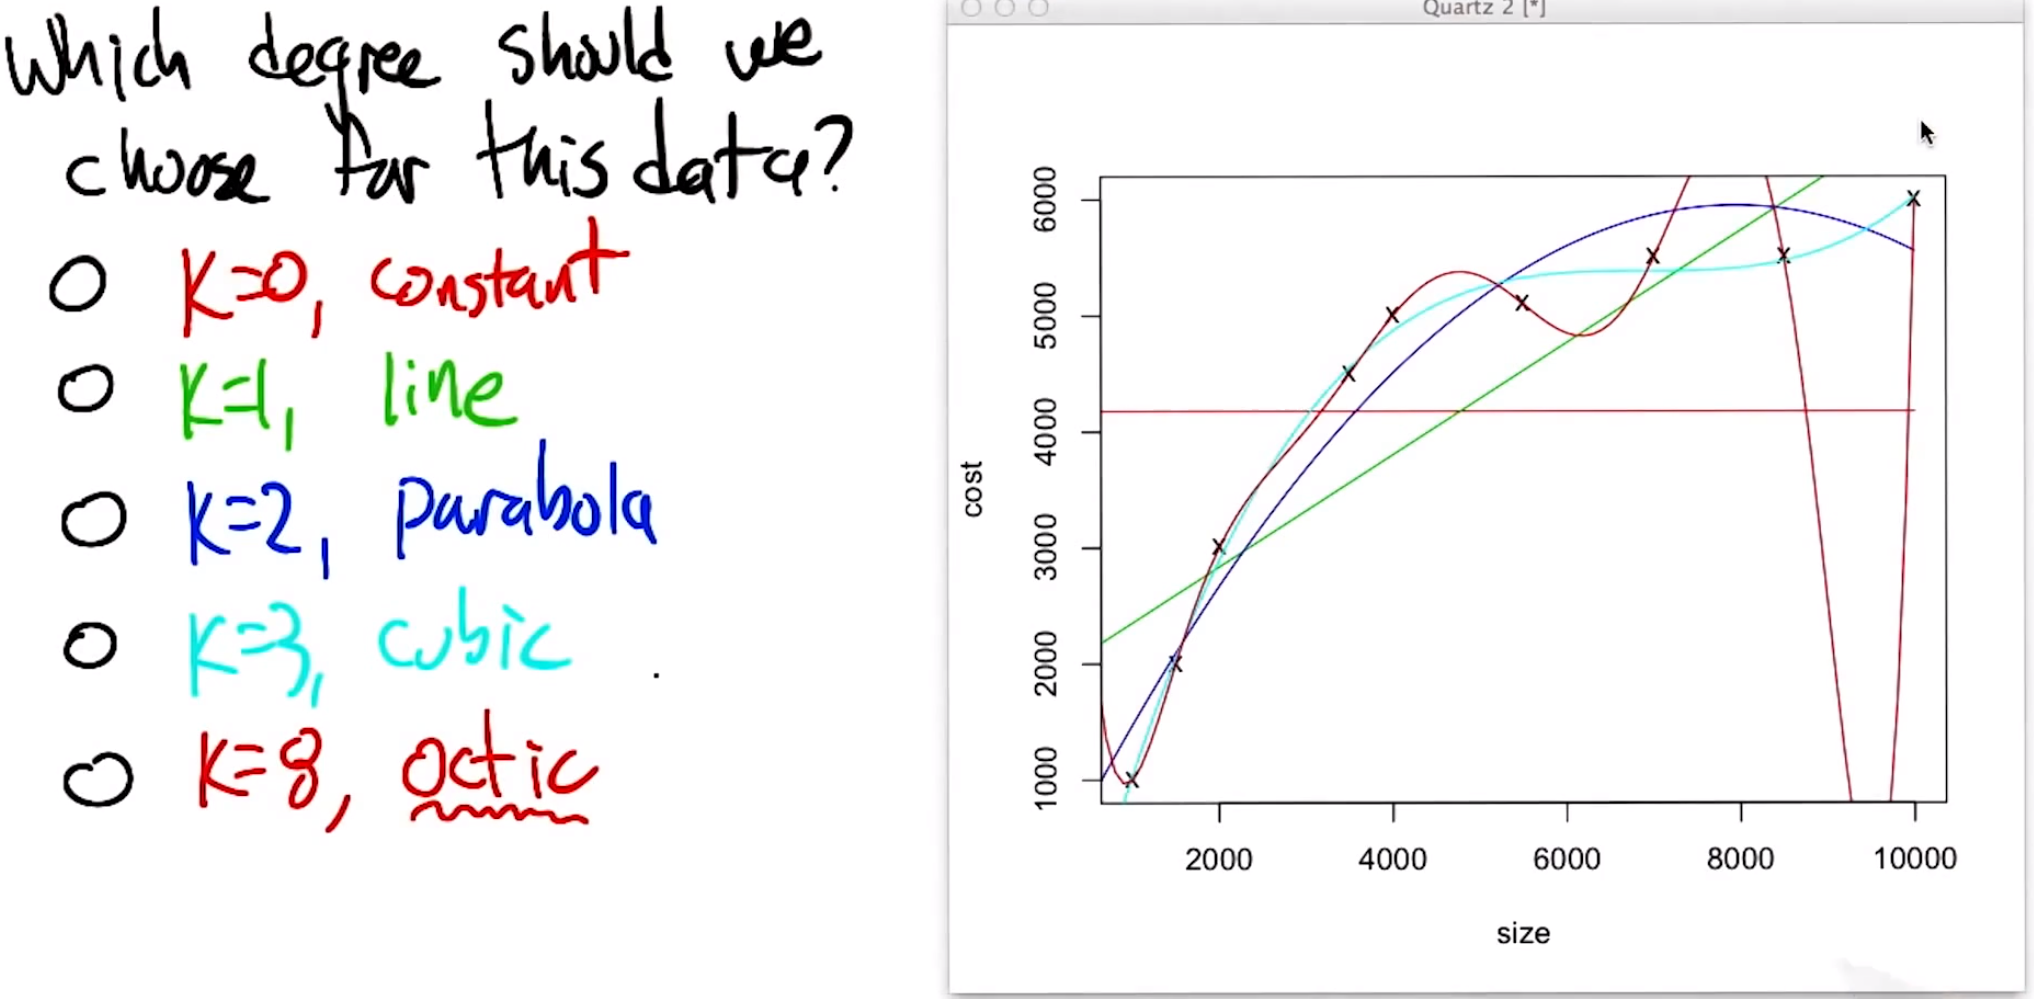 Which degree should we
choose for this data?
K=0, constant
K=1, line
K=2, parabola
K=3, cubic
K=8, octic
Quartz 2 [*]
6000
5000
4000
3000
2000
1000
cost
2000 4000 6000 8000 10000
size